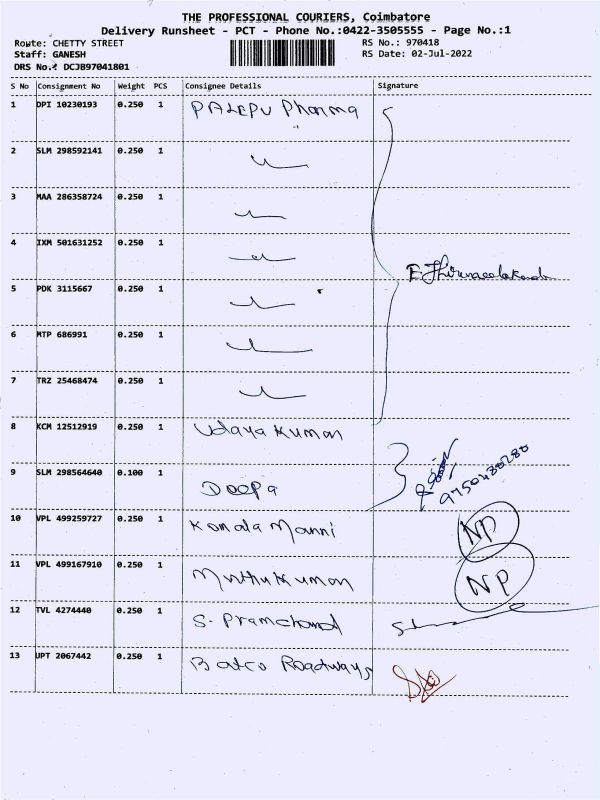 THE PROFESSIONAL COURIERS, Coimbatore
Delivery Runsheet - PCT - Phone No.:0422-3505555 - Page No.:1
Route: CHETTY STREET RS No.: 970418
Staff: GANESH RS Date: 02-Jul-2022
DRS No.: DCJB97041801
S No Consignment No Weight PCS Consignee Details Signature
1 DPI 10230193 0.250 1 PALEPU Pharma
2 SLM 298592141 0.250 1
3 MAA 286358724 0.250 1
4 IXM 501631252 0.250 1
5 PDK 3115667 0.250 1
6 MTP 686991 0.250 1
7 TRZ 25468474 0.250 1
8 KCM 12512919 0.250 1 Udaya Kumar
9 SLM 298564640 0.100 1 Deepa 9750480280
10 VPL 499259727 0.250 1 Komala Manni NP
11 VPL 499167910 0.250 1 Muthu Kumar NP
12 TVL 4274440 0.250 1 S. Pramchand
13 UPT 2067442 0.250 1 Batco Roadways